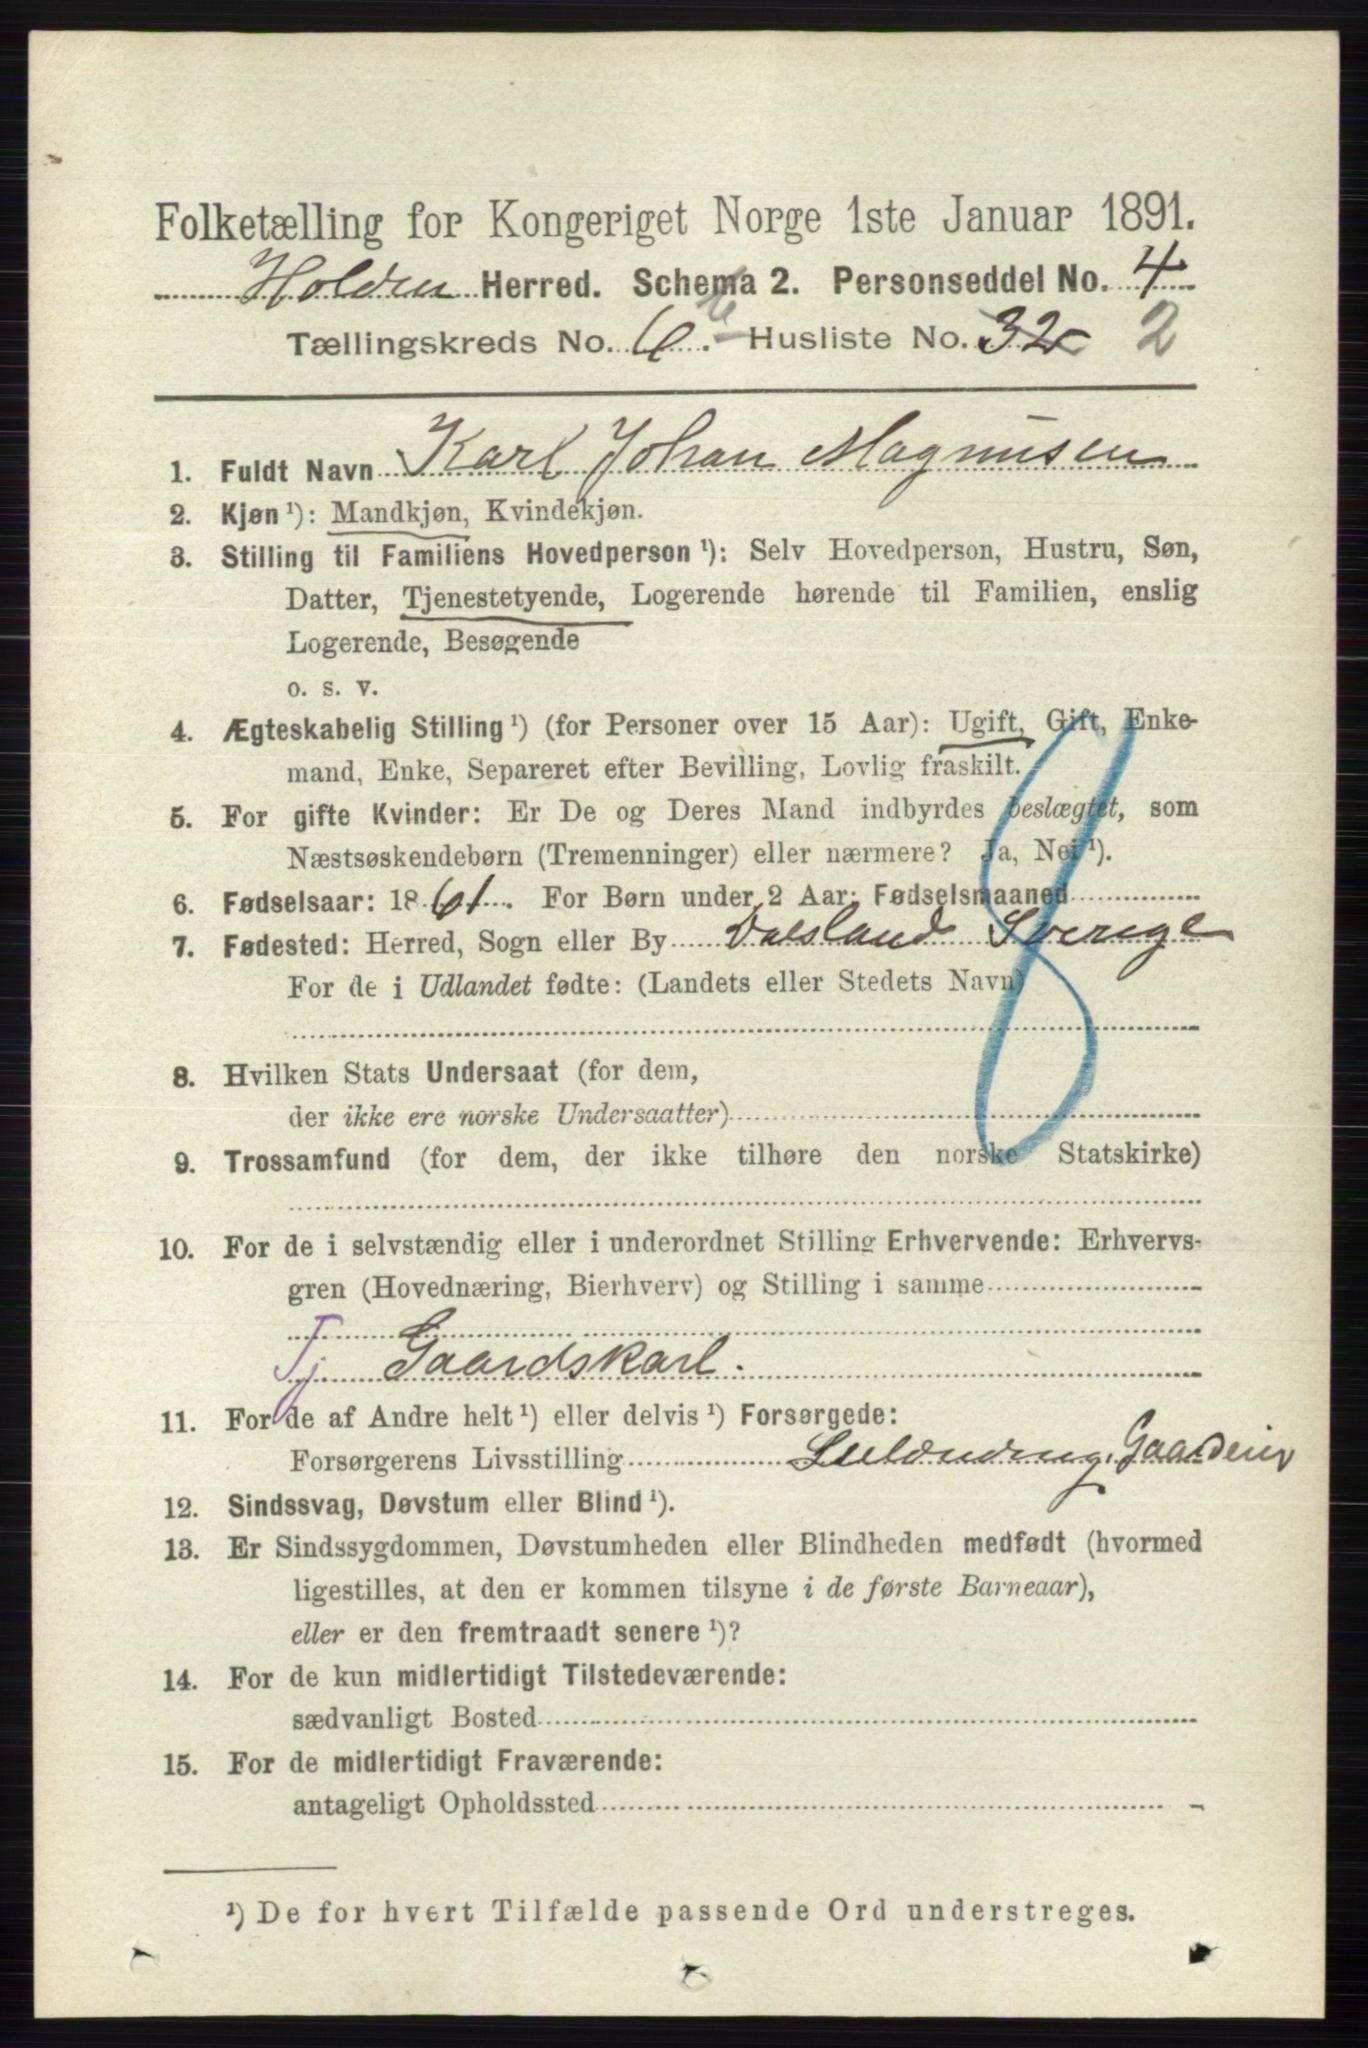 Folketælling for Kongeriget Norge 1ste Januar 1891.
Holden Herred. Schema 2. Personseddel No. 4
Tællingskreds No. 6. Husliste No. 32 2
1. Fuldt Navn Karl Johan Magnusen
2. Kjøn ¹): Mandkjøn, Kvindekjøn.
3. Stilling til Familiens Hovedperson ¹): Selv Hovedperson, Hustru, Søn,
Datter, Tjenestetyende, Logerende hørende til Familien, enslig
Logerende, Besøgende
o. s. v.
4. Ægteskabelig Stilling ¹) (for Personer over 15 Aar): Ugift, Gift, Enke-
mand, Enke, Separeret efter Bevilling, Lovlig fraskilt.
5. For gifte Kvinder: Er De og Deres Mand indbyrdes beslægtet, som
Næstsøskendebørn (Tremenninger) eller nærmere? Ja, Nei ¹).
6. Fødselsaar: 1861. For Børn under 2 Aar: Fødselsmaaned
7. Fødested: Herred, Sogn eller By Dalsland Sverige
For de i Udlandet fødte: (Landets eller Stedets Navn)
8. Hvilken Stats Undersaat (for dem,
der ikke ere norske Undersaatter)
9. Trossamfund (for dem, der ikke tilhøre den norske Statskirke)
10. For de i selvstændig eller i underordnet Stilling Erhvervende: Erhvervs-
gren (Hovednæring, Bierhverv) og Stilling i samme
Tj Gaardskarl.
11. For de af Andre helt ¹) eller delvis ¹) Forsørgede:
Forsørgerens Livsstilling Gaardeier
12. Sindssvag, Døvstum eller Blind ¹).
13. Er Sindssygdommen, Døvstumheden eller Blindheden medfødt (hvormed
ligestilles, at den er kommen tilsyne i de første Barneaar),
eller er den fremtraadt senere ¹)?
14. For de kun midlertidigt Tilstedeværende:
sædvanligt Bosted
15. For de midlertidigt Fraværende:
antageligt Opholdssted
¹) De for hvert Tilfælde passende Ord understreges.